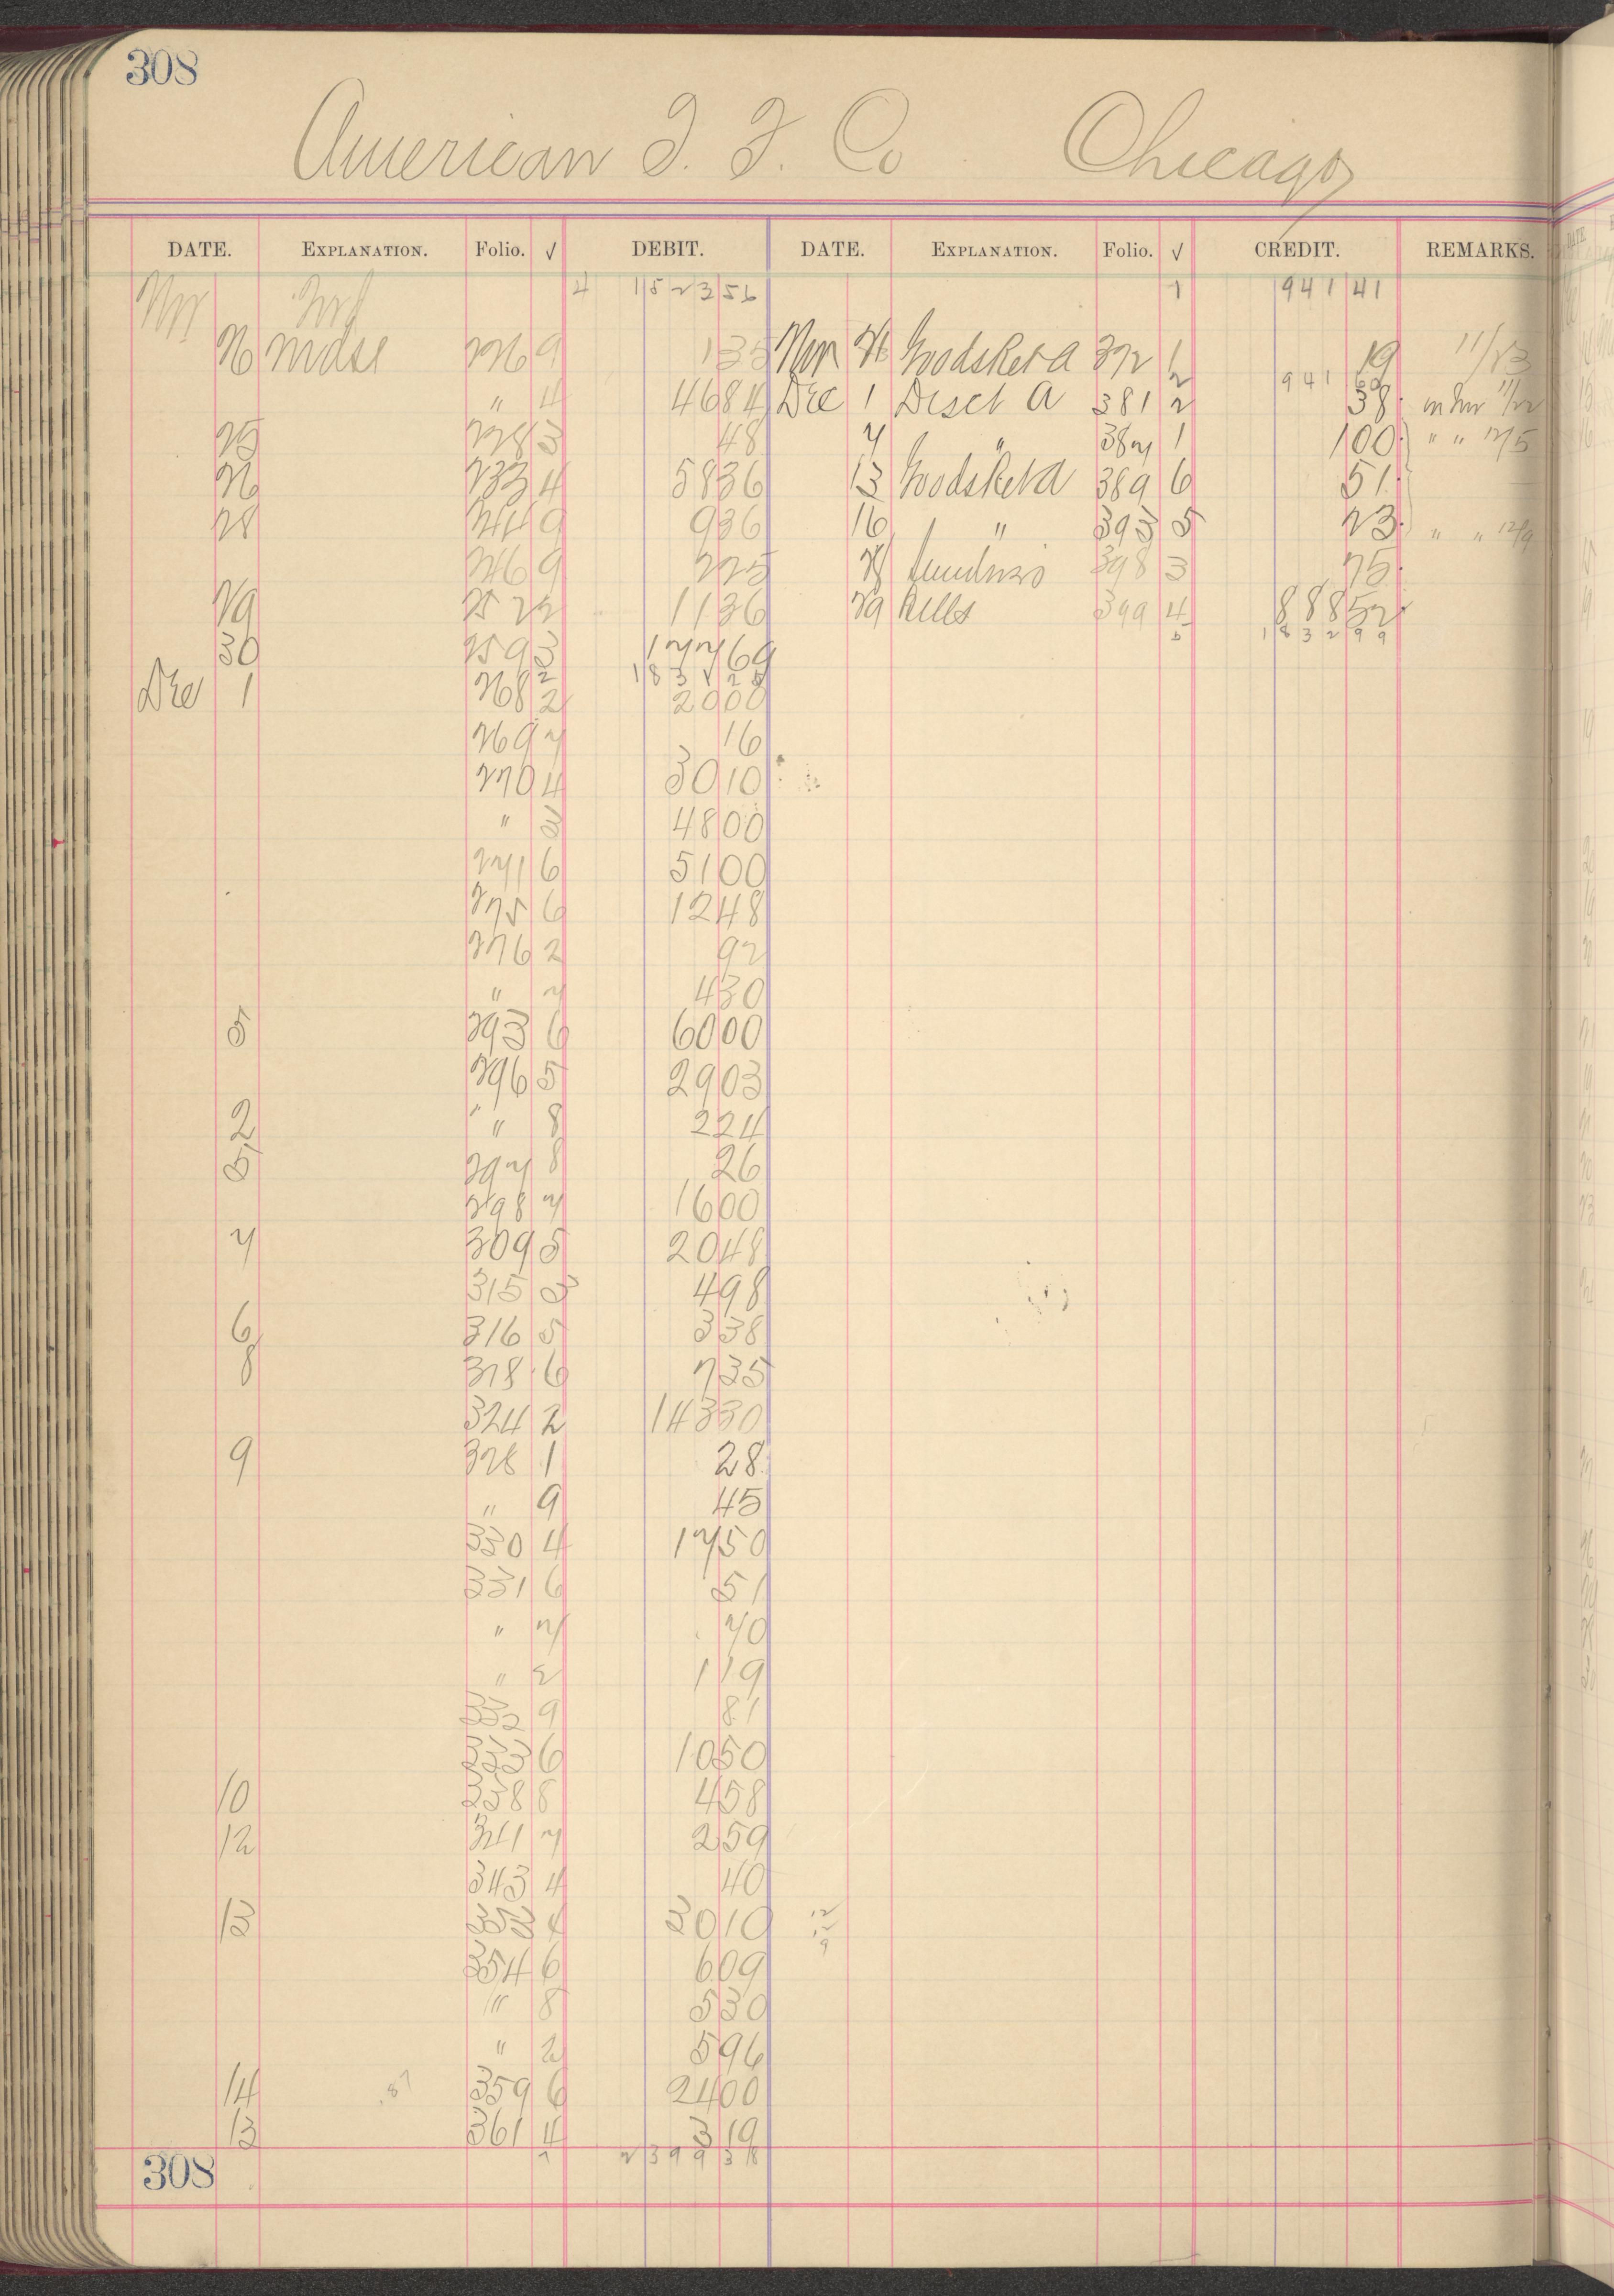 308
American T. T. Co Chicago
DATE. EXPLANATION. Folio. √ DEBIT. DATE. EXPLANATION. Folio. √ CREDIT. REMARKS.
4 1523 56 1 941 41
26 Mdse 226 9 1 35 Nov 26 Goods Ret a 372 1 19 11/23
2 941 60
" 4 46 84 Dec 1 Disct a 381 2 38 in Inv 11/22
25 228 3 48 7 " 387 1 1 00 " " 12/5
26 233 4 58 36 13 Goods Ret a 389 6 51
28 244 9 9 36 16 " 393 5 23 " " 12/9
246 9 2 25 398 3 75
29 252 2 11 36 29 Bills 399 4 888 52
5 1832 99
30 259 3 177 69
2 1831 28
Dec 1 268 2 20 00
269 7 16
270 4 30 10
" 3 48 00
271 6 51 00
275 6 12 48
276 2 92
" 7 4 30
5 293 6 60 00
296 5 29 03
2 " 8 2 24
5 297 8 26
298 7 16 00
7 309 5 20 48
315 3 4 98
6 316 5 3 38
8 318 6 7 35
324 2 143 30
9 328 1 28
" 9 45
330 4 17 50
331 6 51
" 7 70
" 2 1 19
332 9 81
333 6 10 50
10 338 8 4 58
12 341 7 2 59
343 4 40
13 353 4 30 10
354 6 6 09
" 8 5 30
" 2 5 96
14 359 6 24 00
13 361 4 3 19
7 2399 38
308